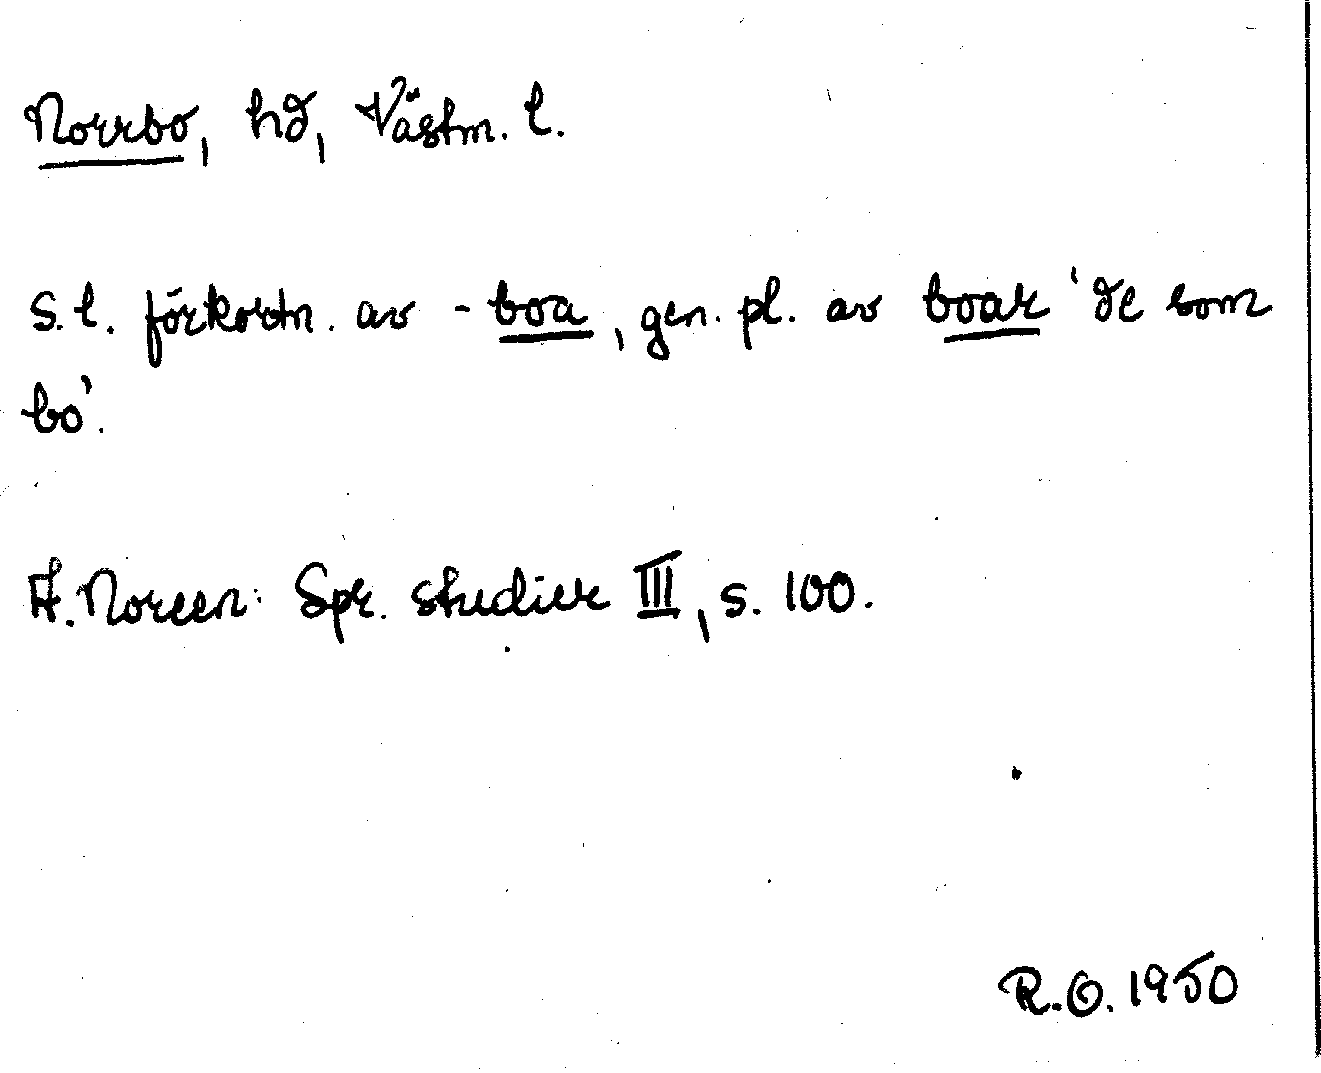 Norrbo, hd, Västm. l.
S.l. förkortn. av -boa, gen. pl. av boar 'de som
bo'.
A. Noreen: Spr. studier III, s. 100.
R.O. 1950